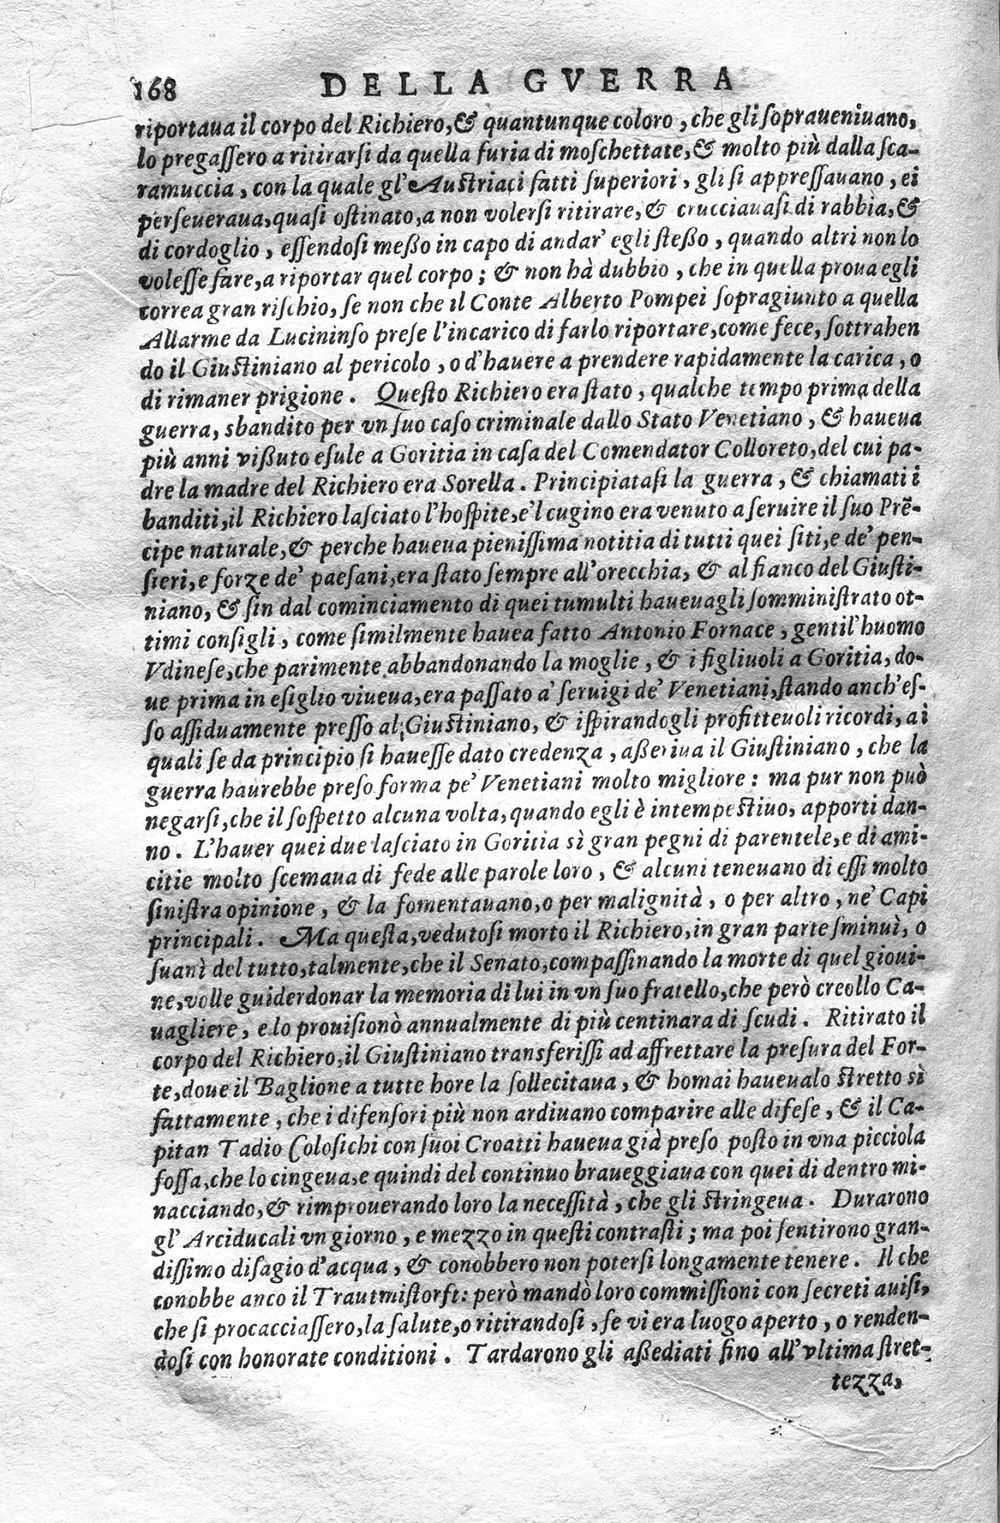 168 DELLA GVERRA
riportaua il corpo del Richiero, & quantunque coloro, che gli sopraueniuano,
lo pregassero a ritirarsi da quella furia di moschettate, & molto più dalla sca-
ramuccia, con la quale gl'Austriaci fatti superiori, gli si appressauano, ei
perseueraua, quasi ostinato, a non volersi ritirare, & crucciauasi di rabbia, &
di cordoglio, essendosi meßo in capo di andar' egli steßo, quando altri non lo
volesse fare, a riportar quel corpo; & non hà dubbio, che in quella proua egli
correa gran rischio, se non che il Conte Alberto Pompei sopragiunto a quella
Allarme da Lucininso prese l'incarico di farlo riportare, come fece, sottrahen
do il Giustiniano al pericolo, o d'hauere a prendere rapidamente la carica, o
di rimaner prigione. Questo Richiero era stato, qualche tempo prima della
guerra, sbandito per vn suo caso criminale dallo Stato Venetiano, & haueua
più anni vißuto esule a Goritia in casa del Comendator Colloreto, del cui pa-
dre la madre del Richiero era Sorella. Principiatasi la guerra, & chiamati i
banditi, il Richiero lasciato l'hospite, e'l cugino era venuto a seruire il suo Prē-
cipe naturale, & perche haueua pienissima notitia di tutti quei siti, e de' pen-
sieri, e forze de' paesani, era stato sempre all'orecchia, & al fianco del Giusti-
niano, & sin dal cominciamento di quei tumulti haueuagli somministrato ot-
timi consigli, come similmente hauea fatto Antonio Fornace, gentil'huomo
Vdinese, che parimente abbandonando la moglie, & i figliuoli a Goritia, do-
ue prima in esiglio viueua, era passato a' seruigi de' Venetiani, stando anch'es-
so assiduamente presso al Giustiniano, & ispirandogli profitteuoli ricordi, ai
quali se da principio si hauesse dato credenza, aßeriua il Giustiniano, che la
guerra haurebbe preso forma pe' Venetiani molto migliore: ma pur non può
negarsi, che il sospetto alcuna volta, quando egli è intempestiuo, apporti dan-
no. L'hauer quei due lasciato in Goritia sì gran pegni di parentele, e di ami-
citie molto scemaua di fede alle parole loro, & alcuni teneuano di essi molto
sinistra opinione, & la fomentauano, o per malignità, o per altro, ne' Capi
principali. Ma questa, vedutosi morto il Richiero, in gran parte sminuì, o
suanì del tutto, talmente, che il Senato, compassinando la morte di quel gioui-
ne, volle guiderdonar la memoria di lui in vn suo fratello, che però creollo Ca-
uagliere, e lo prouisionò annualmente di più centinara di scudi. Ritirato il
corpo del Richiero, il Giustiniano transferissi ad affrettare la presura del For-
te, doue il Baglione a tutte hore la sollecitaua, & homai haueualo stretto sì
fattamente, che i difensori più non ardiuano comparire alle difese, & il Ca-
pitan Tadio Colosichi con suoi Croatti haueua già preso posto in vna picciola
fossa, che lo cingeua, e quindi del continuo braueggiaua con quei di dentro mi-
nacciando, & rimprouerando loro la necessità, che gli stringeua. Durarono
gl'Arciducali vn giorno, e mezzo in questi contrasti; ma poi sentirono gran-
dissimo disagio d'acqua, & conobbero non potersi longamente tenere. Il che
conobbe anco il Trautmistorft: però mandò loro commissioni con secreti auisi,
che si procacciassero, la salute, o ritirandosi, se vi era luogo aperto, o renden-
dosi con honorate conditioni. Tardarono gli aßediati fino all'vltima stret-
tezza,